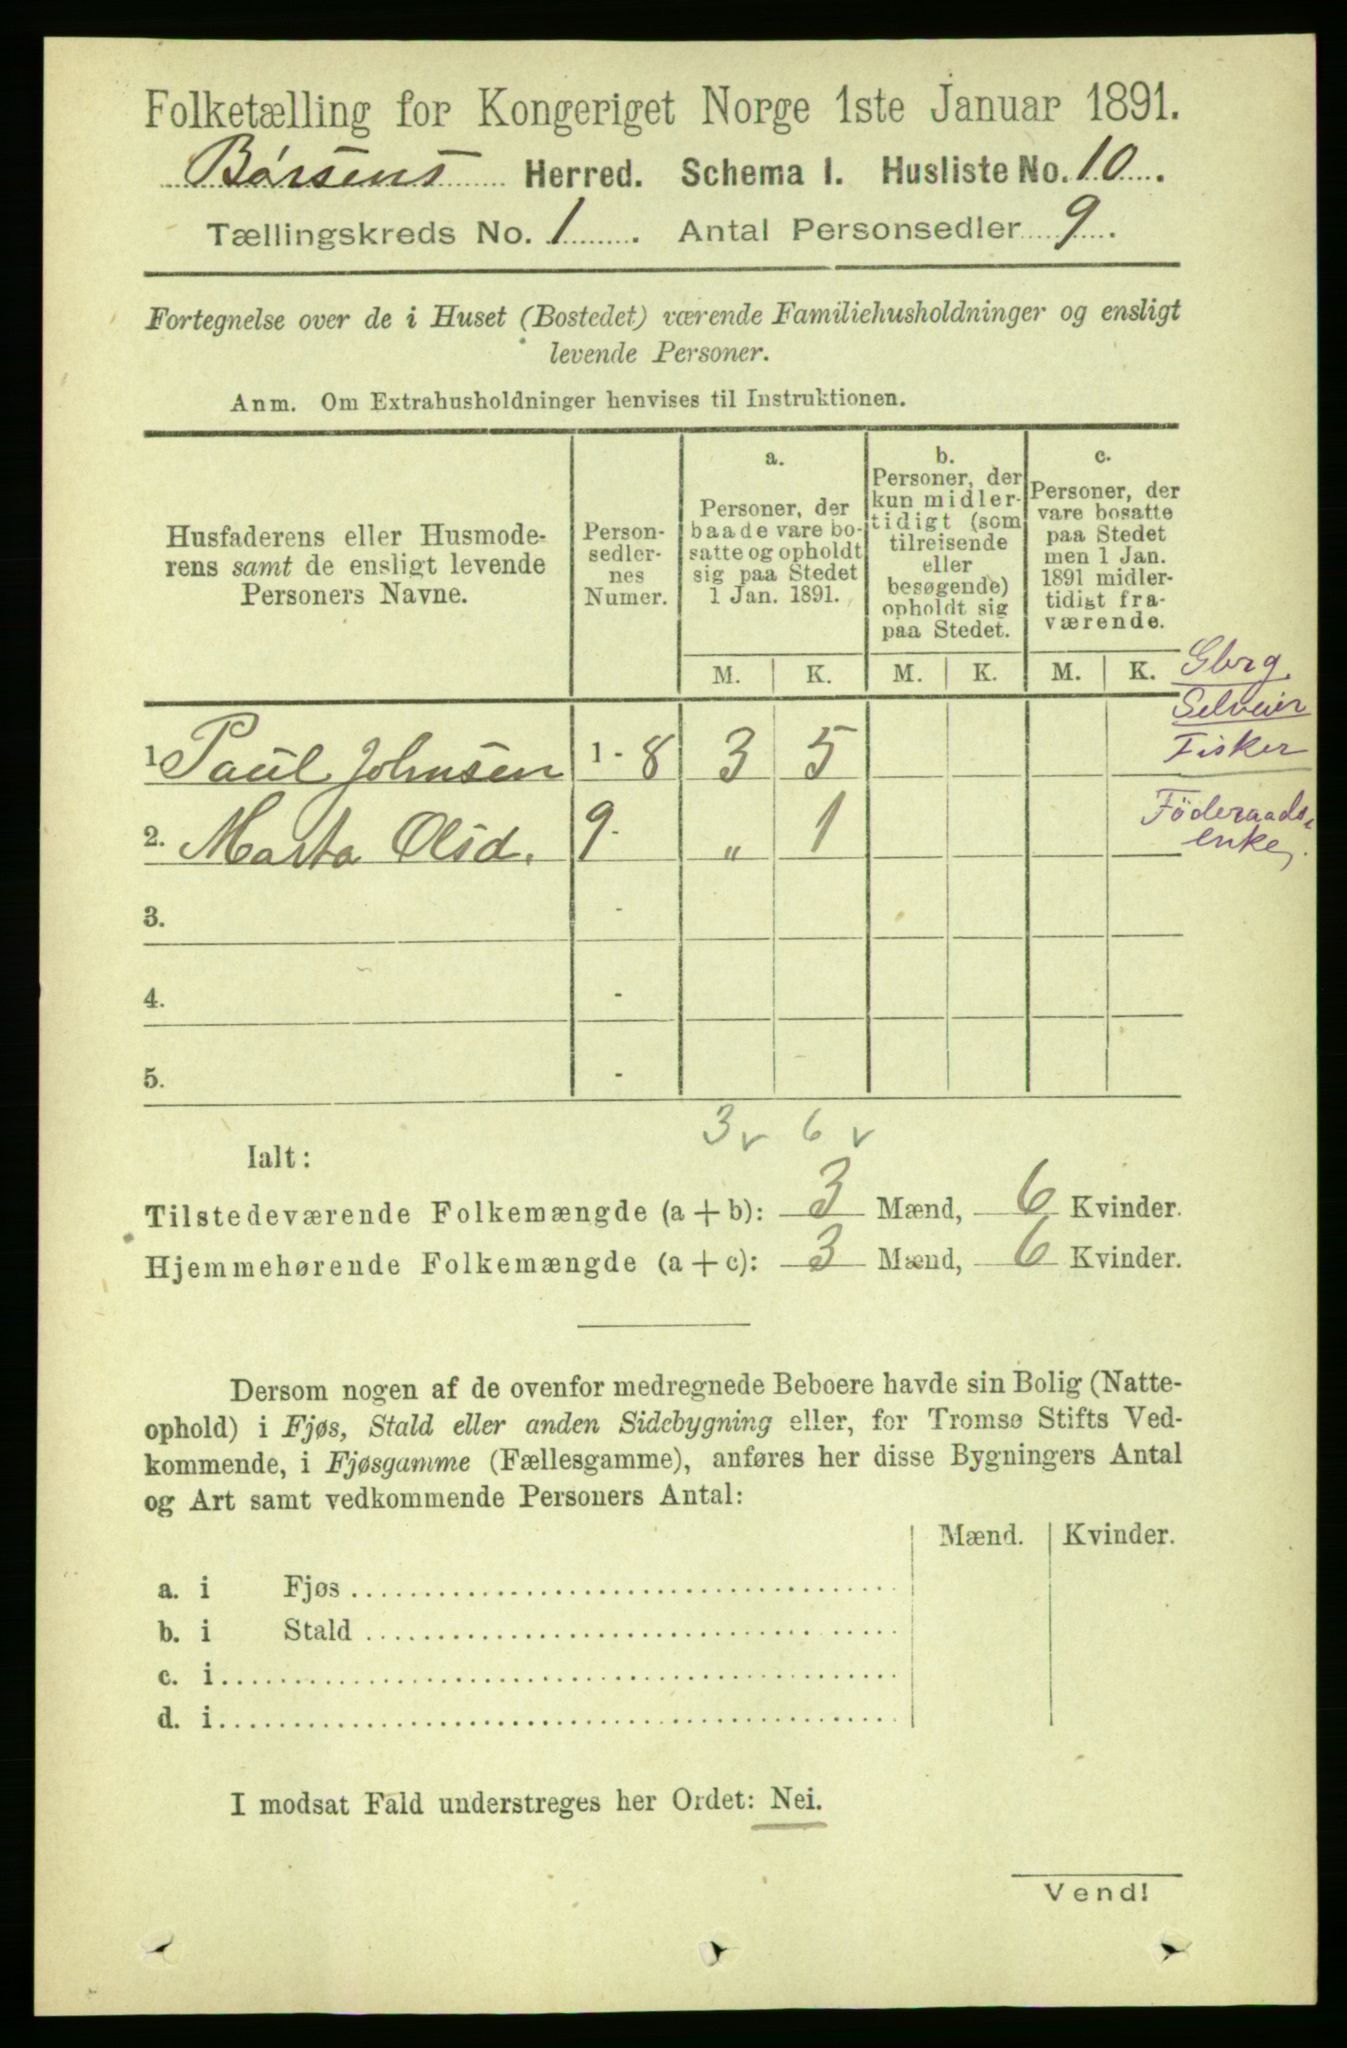 Folketælling for Kongeriget Norge 1ste Januar 1891.
Børsens Herred. Schema 1. Husliste No. 10.
Tællingskreds No. 1. Antal Personsedler 9.
Fortegnelse over de i Huset (Bostedet) værende Familiehusholdninger og ensligt
levende Personer.
Anm. Om Extrahusholdninger henvises til Instruktionen.
Husfaderens eller Husmode-
rens samt de ensligt levende
Personers Navne.
Person-
sedler-
nes
Numer.
a.
Personer, der
baade vare bo-
satte og opholdt
sig paa Stedet
1 Jan. 1891.
b.
Personer, der
kun midler-
tidigt (som
tilreisende
eller
besøgende)
opholdt sig
paa Stedet.
c.
Personer, der
vare bosatte
paa Stedet
men 1 Jan.
1891 midler-
tidigt fra-
værende.
M. K. M. K. M. K.
Gbrg
Selveier
Fisker
1 Paul Johnsen 1 - 8 3 5
2. Marta Olsd. 9 - „ 1
Föderaads-
enke.
3. -
4. -
5. -
3 v 6 v
Ialt:
Tilstedeværende Folkemængde (a + b): 3 Mænd, 6 Kvinder.
Hjemmehørende Folkemængde (a + c): 3 Mænd, 6 Kvinder.
Dersom nogen af de ovenfor medregnede Beboere havde sin Bolig (Natte-
ophold) i Fjøs, Stald eller anden Sidebygning eller, for Tromsø Stifts Ved-
kommende, i Fjøsgamme (Fællesgamme), anføres her disse Bygningers Antal
og Art samt vedkommende Personers Antal:
Mænd. Kvinder.
a. i Fjøs
b. i Stald
c. i
d. i
I modsat Fald understreges her Ordet: Nei.
Vend!